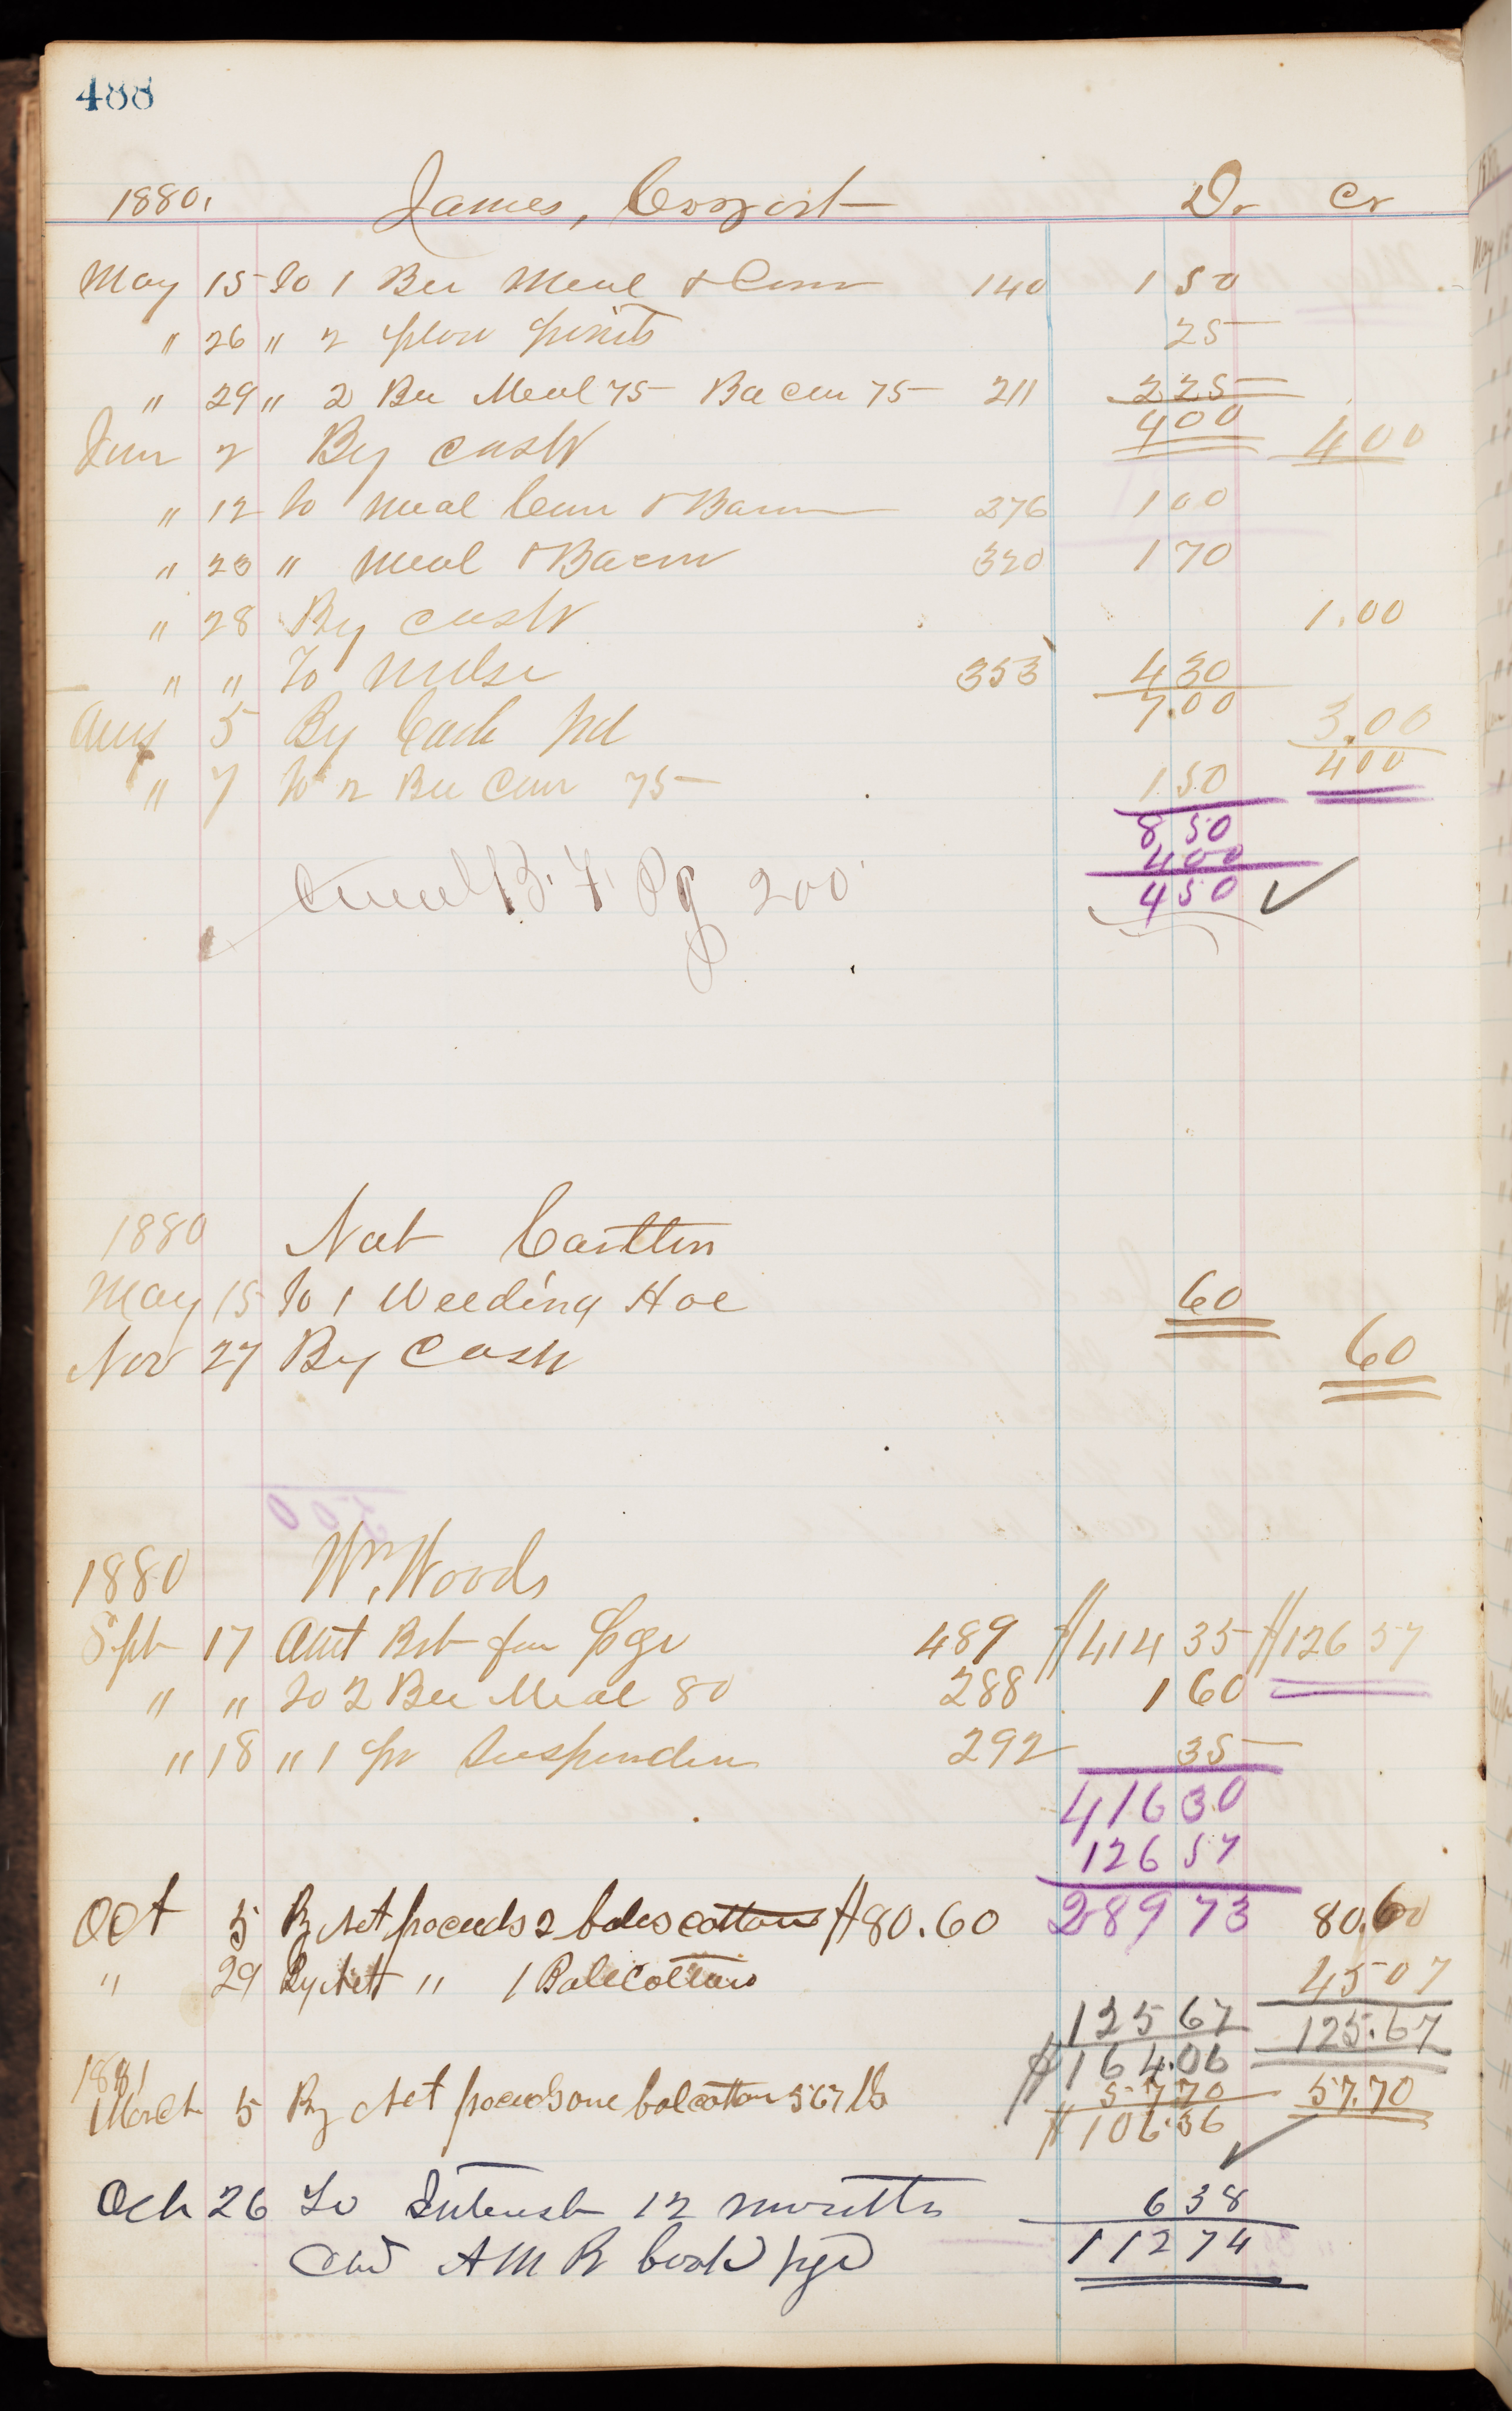 488
1880. James, Cozort Dr Cr
May 15 To 1 Bu Meal & Corn 140 1 50
" 26 " 2 plow points 25
" 29 " 2 Bu Meal 75 Bacon 75 211 2 25
4 00
Jun 2 By cash 4 00
" 12 to Meal Corn & Bacon 276 1 00
" 23 " Meal & Bacon 320 1 70
" 28 By cash 1.00
" " To Mdse 353 4 30
7.00
Aug 5 By Cash pd 3.00
4 00
" 7 to 2 Bu Corn 75 1 50
8 50
4 00
4 50
B. F. Pg 200
1880 Nat
May 15 To 1 Weeding Hoe 60
Nov 27 By Cash 60
1880 Wm. Woods
Sept 17 Amt Brt for Pge 489 $414 35 $126 57
" " To 2 Bu Meal 80 288 1 60
" 18 " 1 pr Suspenders 292 35
416 30
126 57
289 73
Oct 5 By Net proceeds 2 bales cotton $80.60 80.60
" 29 By Nett " 1 Bale Cotton 45 07
125 67 125.67
$164.06
1881
March 5 By Net proceeds one bal cotton 567 lb 57 70 57.70
$106.36
Oct 26 To Interest 12 months 6 38
A M R book pge 112 74